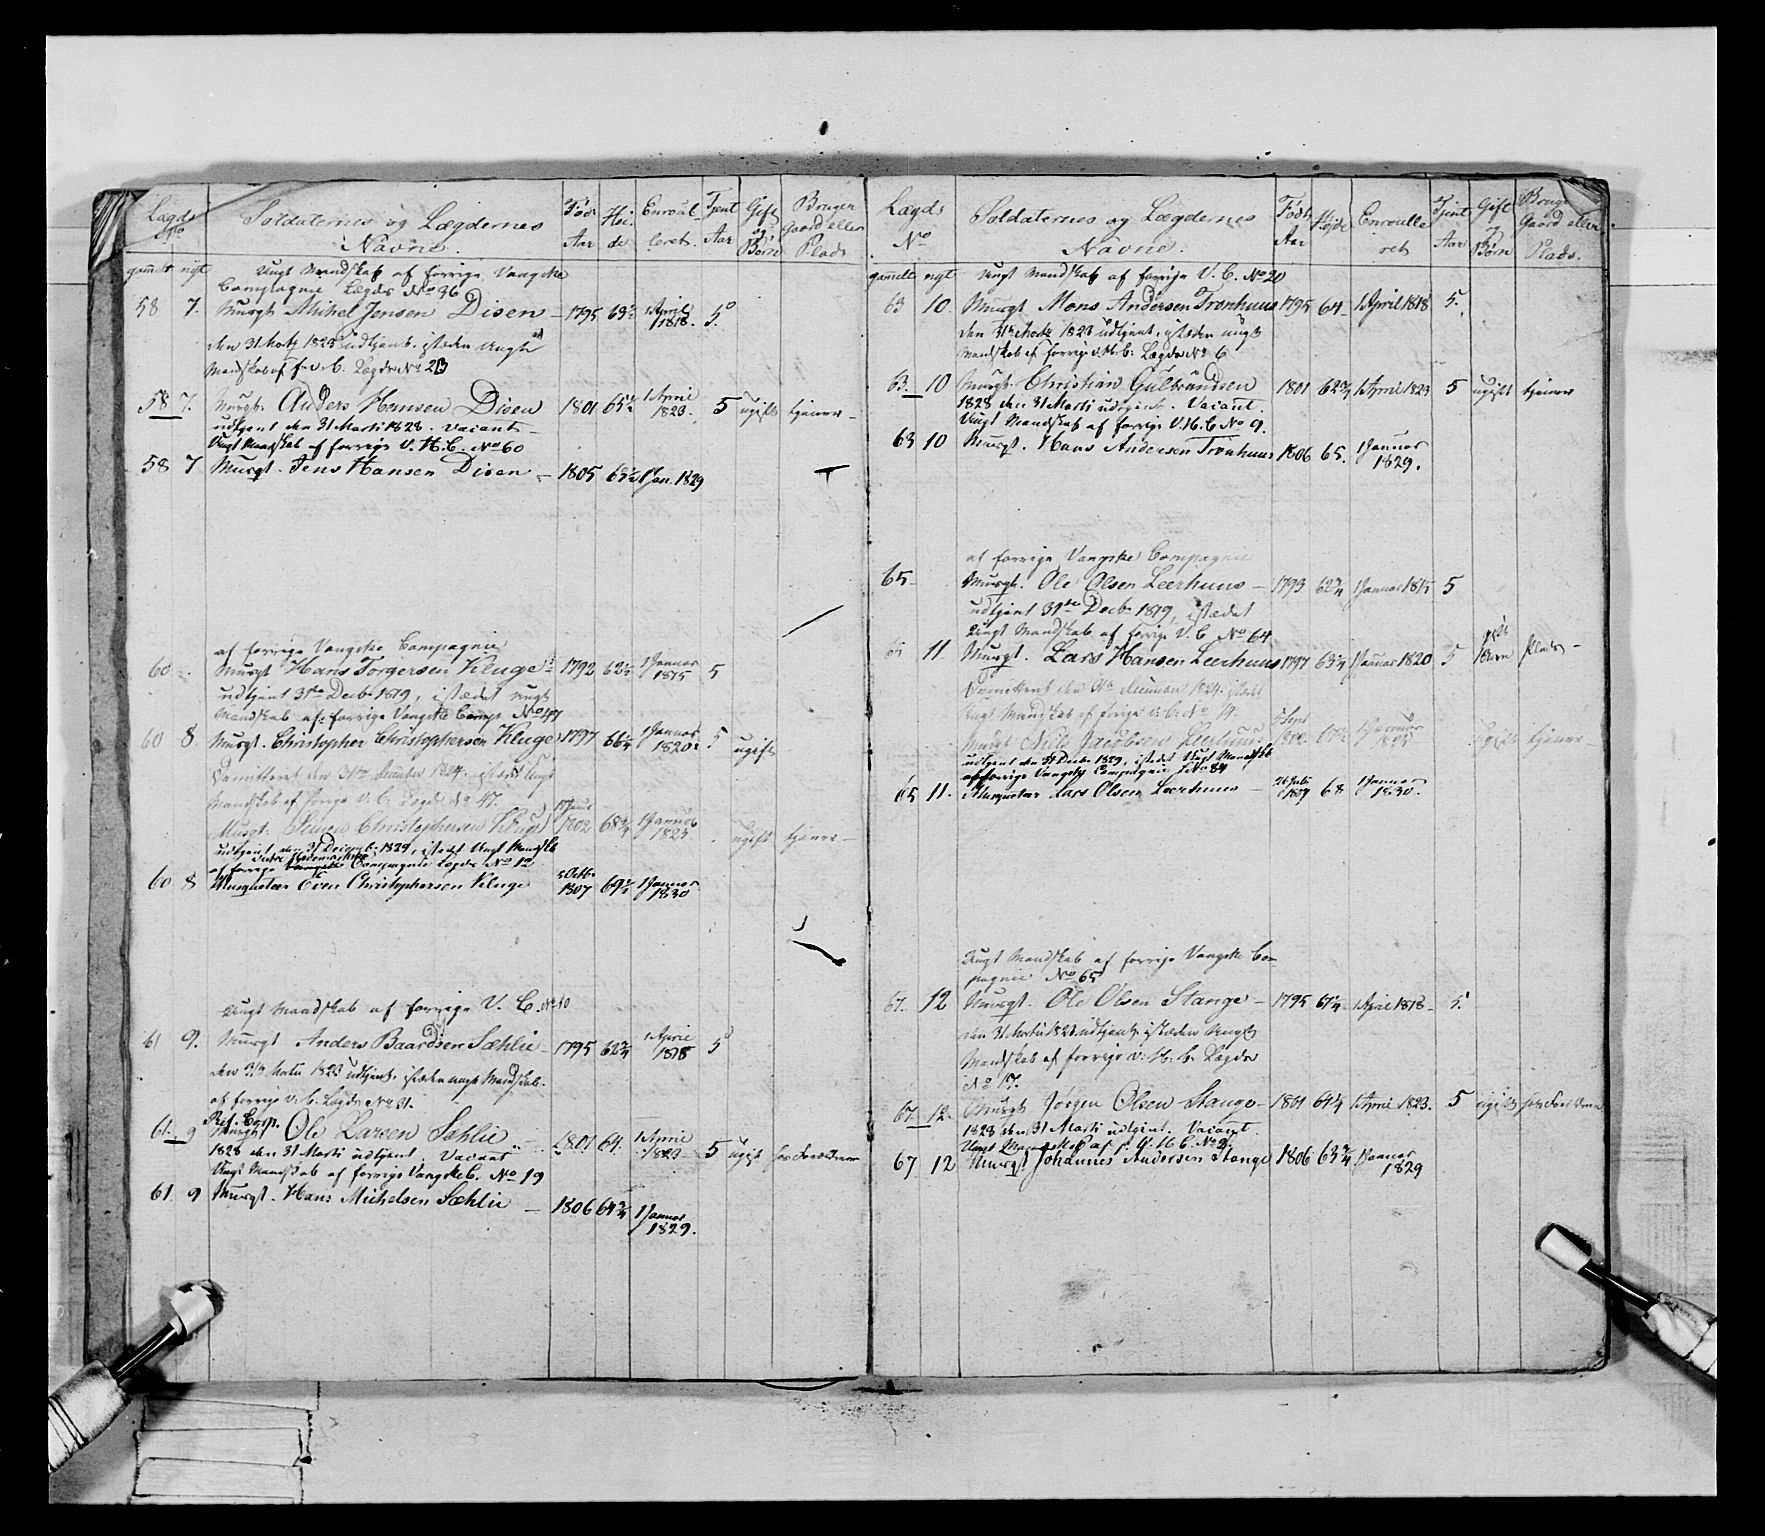 Lægds No Soldaternes og Lægdernes Navne. Født Aar Høide Enroulleret Tjent Aar Gift og Børn Bruger Gaard eller Plads
gamelt nyt Ungt Mandskab af forrige Vangske
Compagnie Lægds No 36
58 7. Musqt. Michel Jensen Disen 1795 63½ 1 April 1818. 5.
den 31 Martz 1823 udtjent, istæden ungt
Mandskab af f. v. C. Lægds No 23
58 7. Musqt. Anders Hansen Disen 1801 65½ 1 April 1823. 5 ugift tjener
udtjent den 31 Marti 1828. vacant
Ungt Mandskab af forrige V. H. C. No 60
58 7 Musqt. Jens Hansen Disen 1805 65½ 1 Jan. 1829
af forrige Vangske Compagnie
60 Musqt Hans Torgersen Kluge 1792 62½ 1 Januar 1815 5
udtjent 31te Decbr 1819, istædet ungt
Mandskab af forrige Vangske Comp. No 47
60 8. Musqt. Christopher Christophersen Kluge 1797 66¼ 1 Januar 1820 5 ugift
Dimitteret den 31te December 1824. istædt Ungt
Mandskab af forrige v. C. Lægds No 47.
Musqt. Simen Christophersen Kluge 1802 68¾ 1 Januar 1825 ugift tjener
udtjent den 31 Decemb. 1829, istedet Ungt Mandskb
af forrige Compagnie Lægds No 12
60 8 Musqueteer Even Christophersen Kluge 5 Octbr 1807 69½ 1 Januar 1830
Ungt Mandskab af forrige V. C. No 10
61 9. Musqt Anders Baardsen Sæhlie 1795 62¾ 1 April 1818 5
den 31te Martii 1823 udtjent, istæden ungt Mandskab
af forrige v. C. Lægds No 31.
Res. Corp.
61. 9 Musqt Ole Larsen Sæhlie 1801 64. 1 April 1823 5 ugift hos Forældrene
1828 den 31 Marti udtjent. Vacant
Ungt Mandskab af forrige Vangske C. No 19
61 9 Musqt. Hans Michelsen Sæhlie 1806 64¾ 1 Januar 1829.
Lægds No Soldaternes og Lægdernes Navne. Født Aar Høide Enroulleret Tjent Aar Gift og Børn Bruger Gaard eller Plads.
gamelt nyt Ungt Mandskab af forrige V. C. No 20
63 10. Musqt Mons Andersen Tronhuus 1795 64 1 April 1818 5.
den 31te Martz 1823 udtjent, istæden ungt
Mandskab af forrige v. H. C. Lægds No 6
63. 10 Musqt. Christian Gulbrandsen 1801 62¾ 1 April 1823 5 ugift tjener
1828 den 31 Marti udtjent. Vacant.
Ungt Mandskab af forrige V. H. C No 9.
63 10 Musqt. Hans Andersen Tronhuus 1806 65. 1 Januar 1829.
af forrige Vangske Compagnie
65. Musqt. Ole Olsen Leerhuus 1793 62¾ 1 Januar 1815 5
udtjent 31te Decbr 1819, istædet
Ungt Mandskab af forrige V. C No 64
65 11 Musqt. Lars Hansen Leerhuus 1797 63¼ 1 Januar 1820 5 gift 1 Barn Plads
Dimitteret den 31te December 1824. istædt
ungt Mandskab af forrige v. C. No 14.
Musqt Niels Jacobsen Leerhuus 1 Januar 1825 ugift tjener
udtjent den 31 Decbr 1829, istedet Ungt Mandskb
af forrige Vangske Compagnie L. No 84
65 11. Musqueteer Lars Olsen Leerhuus 26 Julii 1807 68 1 Januar 1830.
Ungt Mandskab af forrige Vangske Com
pagnie No 65
67. 12 Musqt. Ole Olsen Stange 1795 61¼ 1 April 1818 5.
den 31 Martii 1823 udtjent, istæden Ungt
Mandskab af forrige v. H. C. Lægds
No 17.
67 12. Musqt Jørgen Olsen Stange 1801 64¼ 1 April 1823. 5 ugift hos Forældrene
1828 den 31 Marti udtjent. Vacant.
Ungt Mandskab af f. V. H. C. No 2.
67 12 Musqt Johannes Andersen Stange 1806 63¾ 1 Januar 1829